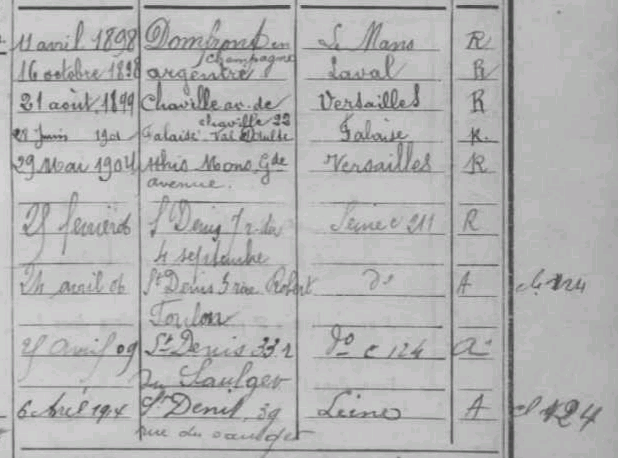 11 avril 1898 Domfront en Le Mans R
Champagne
16 octobre 1898 argentré Laval R
21 août 1899 Chaville av. de Versailles R
chaville 22
28 Juin 1901 Falaise Val d'Falaise R
29 Mai 1904 Athis Mons Gde Versailles R
avenue.
25 février 06 St Denis 7 r. du Seine c 211 R
4 septembre
24 avril 06 St Denis 5 rue Robert do A c 124
Toulon
25 Avril 09 St Denis 33 r do c 124 A
du Saulger
6 Avril 194 St Denis, 39 Seine A c 124
rue du saulger